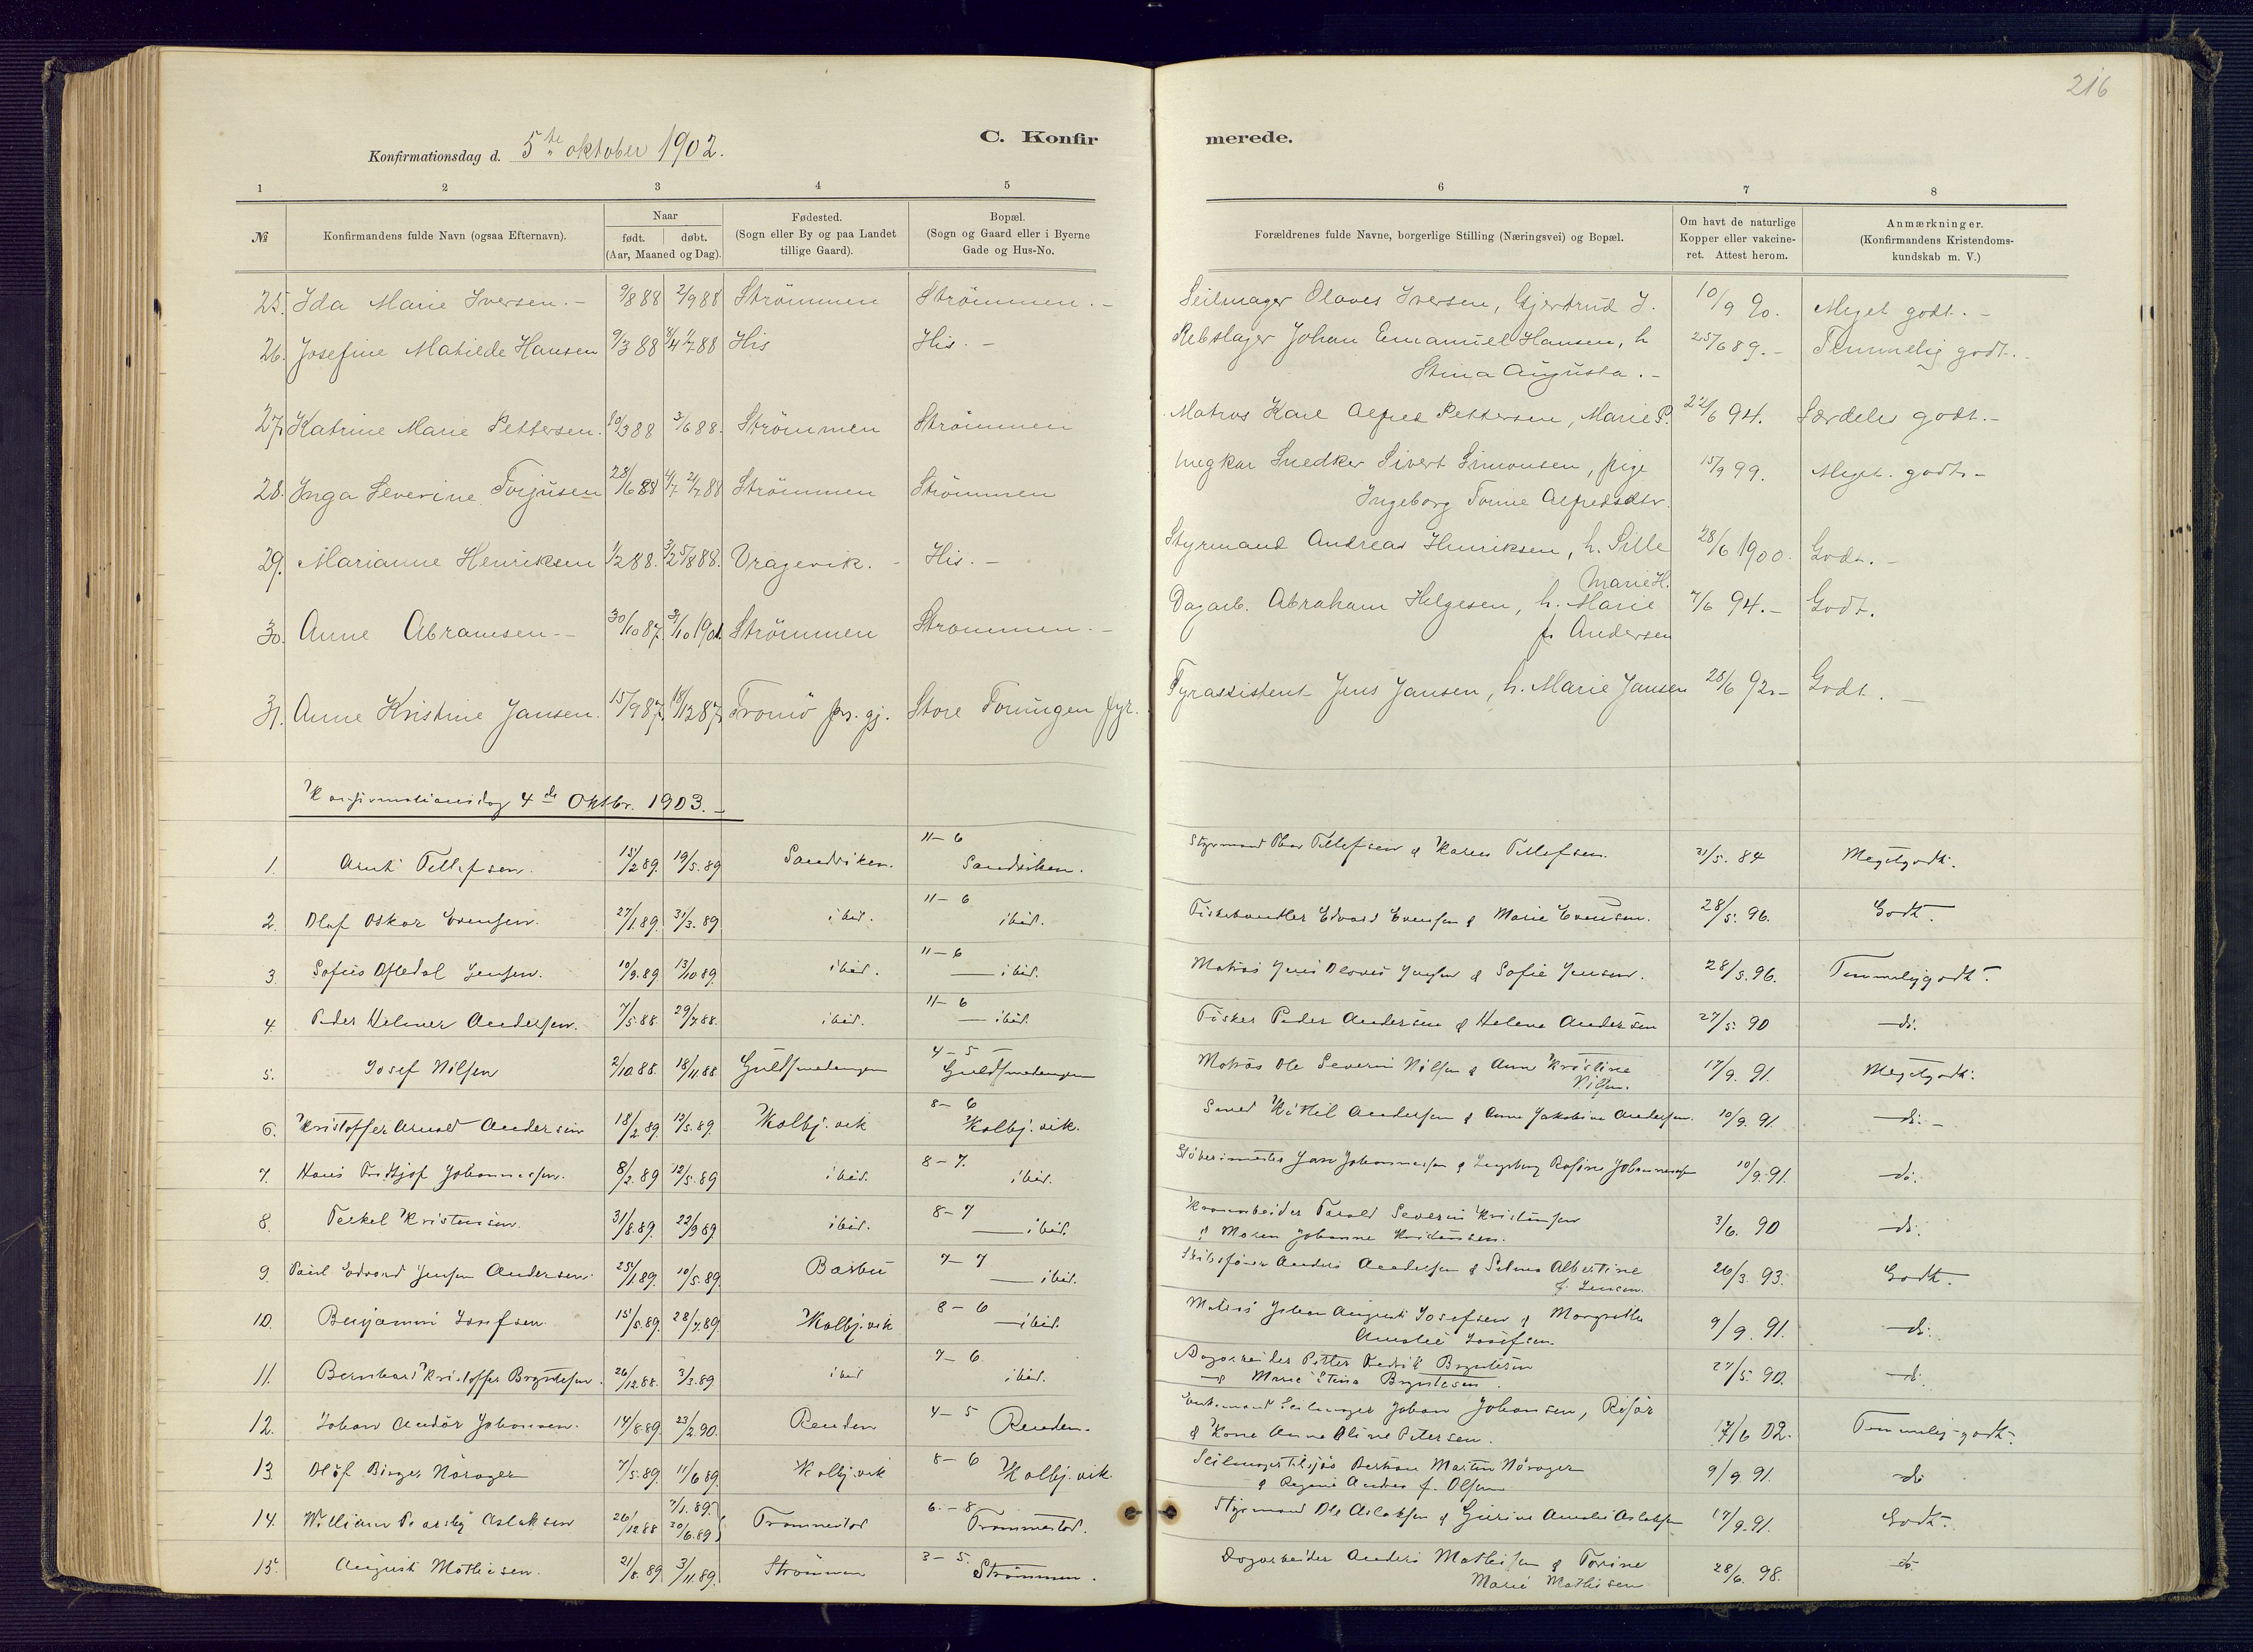 216
Konfirmationsdag d. 5te oktober 1902.
C. Konfir
merede.
1 2 3 4 5 6 7 8
№ Konfirmandens fulde Navn (ogsaa Efternavn). Naar født. døbt. (Aar, Maaned og Dag). Fødested. (Sogn eller By og paa Landet tillige Gaard). Bopæl. (Sogn og Gaard eller i Byerne Gade og Hus-No. Forældrenes fulde Navne, borgerlige Stilling (Næringsvei) og Bopæl. Om havt de naturlige Kopper eller vakcineret. Attest herom. Anmærkninger. (Konfirmandens Kristendomskundskab m. V.)
25. Ida Marie Iversen. 9/8 88 2/9 88 Strömmen Strömmen. Seilmager Olaves Iversen, Gjertrud I. 10/9 90. Meget godt.
26. Josefine Matilde Hansen 9/3 88 His His. Rebslager Johan Emanuel Hansen, h 25/6 89. Temmelig godt.
Stina Augusta.
27. Katrine Marie Pettersen. 10/3 88 3/6 88. Strömmen Strömmen Matros Karl Alfred Pettersen, Marie P. 22/6 94. Særdeles godt.
28. Inga Severine Torjusen 28/6 88 Strömmen Strömmen Ungkar Snedker Sivert Simonsen, pige 15/9 99. Meget godt
Ingeborg Tomine Alfredsdtr.
29. Marianne Henriksen 1/2 88. Vragevik. His. Styrmand Andreas Henriksen, h. Sille 28/6 1900. Godt.
Marie H.
30. Anne Abramsen 30/10 87. 3/10 1901. Strömmen Strömmen. Dagarb. Abraham Helgesen, h. Marie 7/6 94. Godt.
f. Andersen
31. Anne Kristine Jansen. 15/9 87. 18/12 87. Tromö prs. gj. Store Torungen fyr. Fyrassistent Jens Jansen, h. Marie Jansen 28/6 92. Godt.
Konfirmationsdag 4de Oktbr. 1903.
1. Arnt Tellefsen. 15/2 89. 19/5. 89 Sandviken. 11-6 Sandviken. Styrmand Tellefsen & Karen Tellefsen. 31/5. 84 Meget godt.
2. Olaf Oskar Evensen. 27/1. 89. 31/3. 89 ibid. 11-6 ibid. Fiskehandler Edvard Evensen & Marie Evensen. 28/5. 96. Godt.
3. Sofus Jensen. 10/9. 89. 13/10 89. ibid. 11-6 ibid. Matros Jens Olaves Jensen & Sofie Jensen. 28/5. 96. Temmelig godt.
4. Peder Helmer Andersen. 7/5. 88. 29/7. 88. ibid. 11-6 ibid. Fisker Peder Andersen & Helene Andersen 27/5. 90 do.
5. Josef Nilsen 2/10. 88. 18/11. 88 Guldsmedengen 4-5 Guldsmedengen Matros Ole Severin Nilsen & Anne Kristine 17/9. 91. Meget godt.
Nilsen.
6. Kristoffer Arnold Andersen 18/2. 89. 12/5. 89. Kolbj. vik 8-6 Kolbj. vik. Smed Kittil Andersen & Anne Jakobine Andersen. 10/9. 91 do.
7. Hans Fridtjof Johannessen. 8/2. 89 12/5. 89 ibid. 8-7. ibid. Johannessen & Ingeborg Rosine Johannessen 10/9. 91. do.
8. Terkel Kristensen. 31/8. 89. 22/9 89 ibid. 8-7 ibid. Tarald Severin Kristensen 3/6. 90 do.
& Maren Johanne Kristensen.
9. Paul Edvard Jensen Andersen. 25/1. 89. 10/5. 89. Barbu 7-7 ibid. Skibsfører Anders Andersen & Selma Albertine 26/3. 93. Godt.
f. Jensen.
10. Benjamin Josefsen. 15/5. 89. 28/7. 89. Kolbj. vik 8-6 ibid. Matros Johan August Josefsen & Margrethe 9/9. 91. do.
Amalie Josefsen.
11. Bernhard Kristoffer Bryntesen. 26/12. 88. 3/3. 89 ibid 7-6 ibid. Dagarbeider Petter Fredrik Bryntesen 27/5. 90. do.
& Marie Stina Bryntesen.
12. Johan Andor Johansen. 14/8. 89. 23/2. 90. Renden 4-5 Renden. Enkemand Seilmager Johan Johansen, Risør 17/6 02. Temmelig godt.
& Kone Anne Oline Petersen.
13 Olaf Birger Norager 7/5. 89 11/6 89. Kolbj. vik 8-6 Kolbj. vik. Martin Norager 9/9. 91. do
& f. Olsen
14. William Aslaksen 26/12 88 7/1. 89. 30/6. 89 Trommestad 6-8. Trommestad. Styrmand Ole Aslaksen & Gurine Amalie Aslaksen 17/9. 91. Godt.
15. August Mathisen. 21/8. 89 3/11. 89. Strømmen 3-5. Strømmen. Dagarbeider Anders Mathisen & Torine 28/6. 98. do.
Marie Mathisen